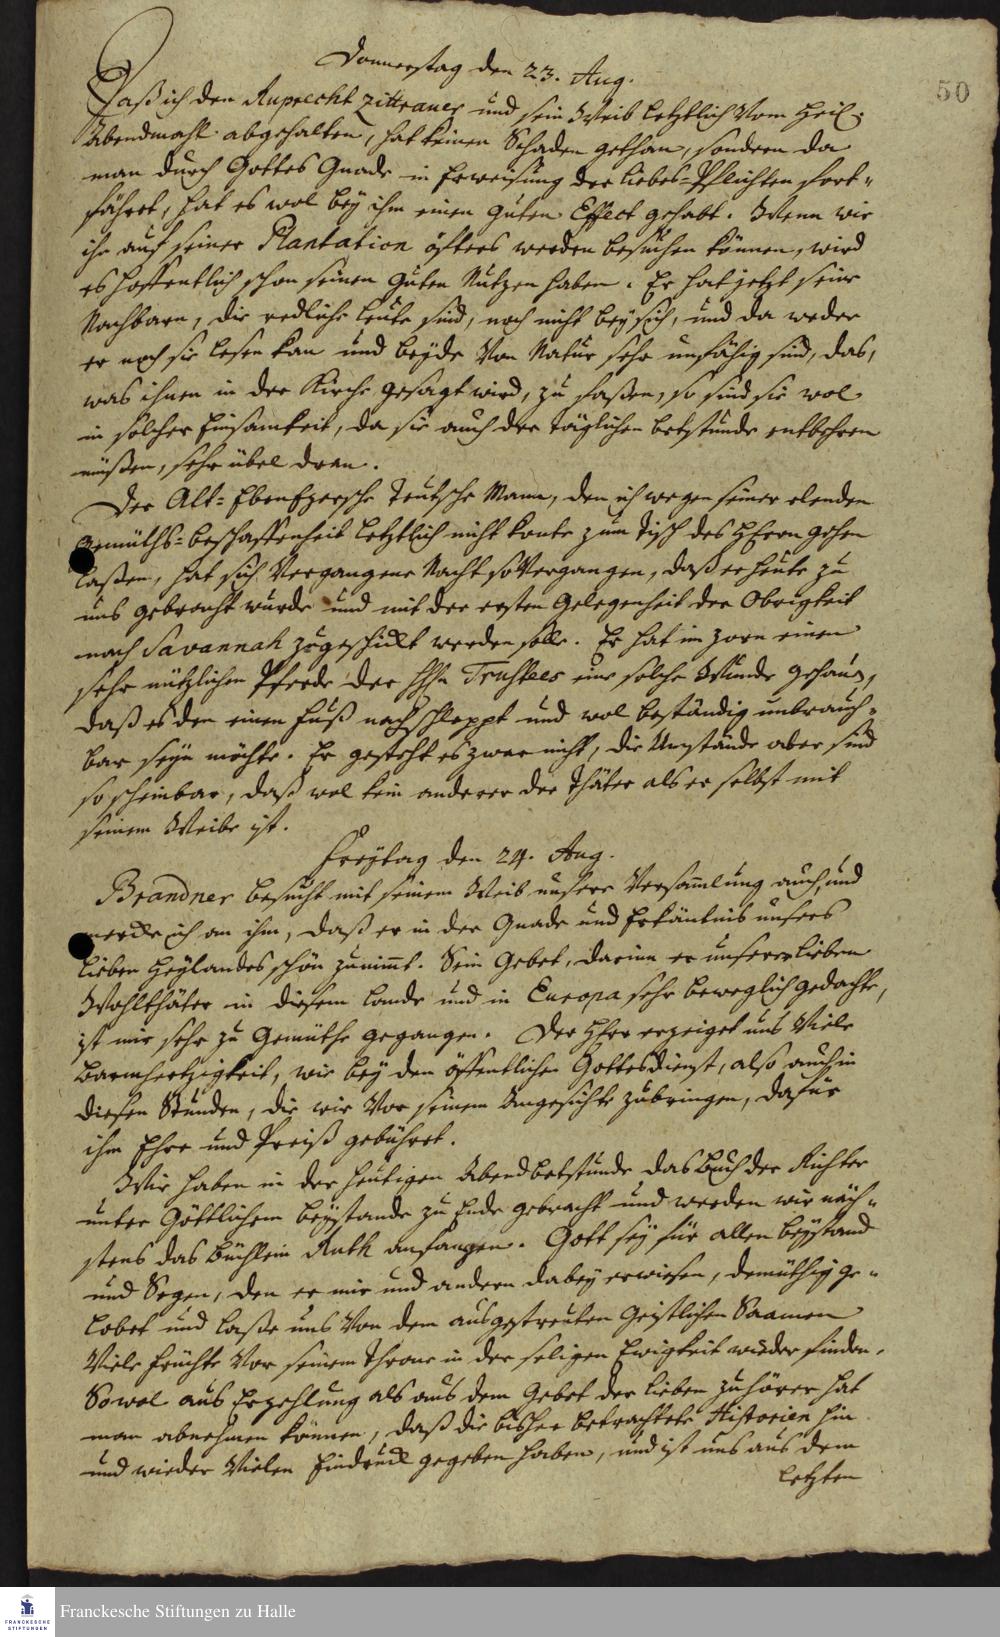 50
Donnerstag den 23. Aug.
Daß ich den Ruprecht Zittrauer und sein Weib letztlich vom Heil.
Abendmahl abgehalten, hat keinen Schaden gethan, sondern da
man durch Gottes Gnade in Erweisung der Liebes-Pflichten fort-
fähret, hat es wol bey ihm einen guten Effect gehabt. Wenn wir
ihn auf seiner Plantation öfters werden besuchen können, wird
es hoffentlich schon seinen guten Nutzen haben. Er hat jetzt seine
Nachbarn, die redliche Leute sind, noch nicht bey sich, und da weder
er noch sie lesen kan und beyde von Natur sehr unfähig sind, das,
was ihnen in der Kirche gesagt wird, zu faßen, so sind sie wol
in solcher Einsamkeit, da sie auch der täglichen Betstunde entbehren
müßen, sehr übel dran.
Der Alt-Ebenezersche Teutsche Mann, den ich wegen seiner elenden
Gemüths-Beschaffenheit letztlich nicht konte zum Tisch des HErrn gehen
laßen, hat sich vergangene Nacht so vergangen, daß er heute zu
uns gebracht wurde und mit der ersten Gelegenheit der Obrigkeit
nach Savannah zugeschickt werden solle. Er hat im Zorn einen
sehr nützlichen Pferde der HHn Trustees eine solche Wunde gehaun,
daß es den einen Fuß nachschleppt und wol beständig unbrauch-
bar seyn möchte. Er gesteht es zwar nicht, die Umstände aber sind
so scheinbar, daß wol kein anderer der Thäter als er selbst mit
seinem Weibe ist.
Freytag den 24. Aug.
Brandner besucht mit seinem Weib unsere Versamlung auch, und
mercke ich an ihm, daß er in der Gnade und Erkäntnis unsers
lieben Heylandes schön zunimt. Sein Gebet, darinn er unserer lieben
Wohlthäter in diesem Lande und in Europa sehr beweglich gedachte,
ist mir sehr zu Gemüthe gegangen. Der HErr erzeiget uns viele
Barmhertzigkeit, wie bey dem öffentlichen Gottesdienst, also auch in
diesen Stunden, die wir vor seinem Angesichte zubringen, dafür
ihm Ehre und Preiß gebühret.
Wir haben in der heutigen Abendbetstunde das Buch der Richter
unter Göttlichem Beystande zu Ende gebracht und werden wir näch-
stens das Büchlein Ruth anfangen. Gott sey für allen Beystand
und Segen, den er mir und andern dabey erwiesen, demüthig ge-
lobet und laße uns von dem ausgestreuten geistlichen Saamen
viele Früchte vor seinem Throne in der seligen Ewigkeit wieder finden.
Sowol aus Erzehlung als aus dem Gebet der lieben Zuhörer hat
man abnehmen können, daß die bisher betrachtete Historien hin
und wieder vielen Eindruck gegeben haben, und ist uns aus dem
letzten
FRANCKESCHE
STIFTUNGEN
Franckesche Stiftungen zu Halle